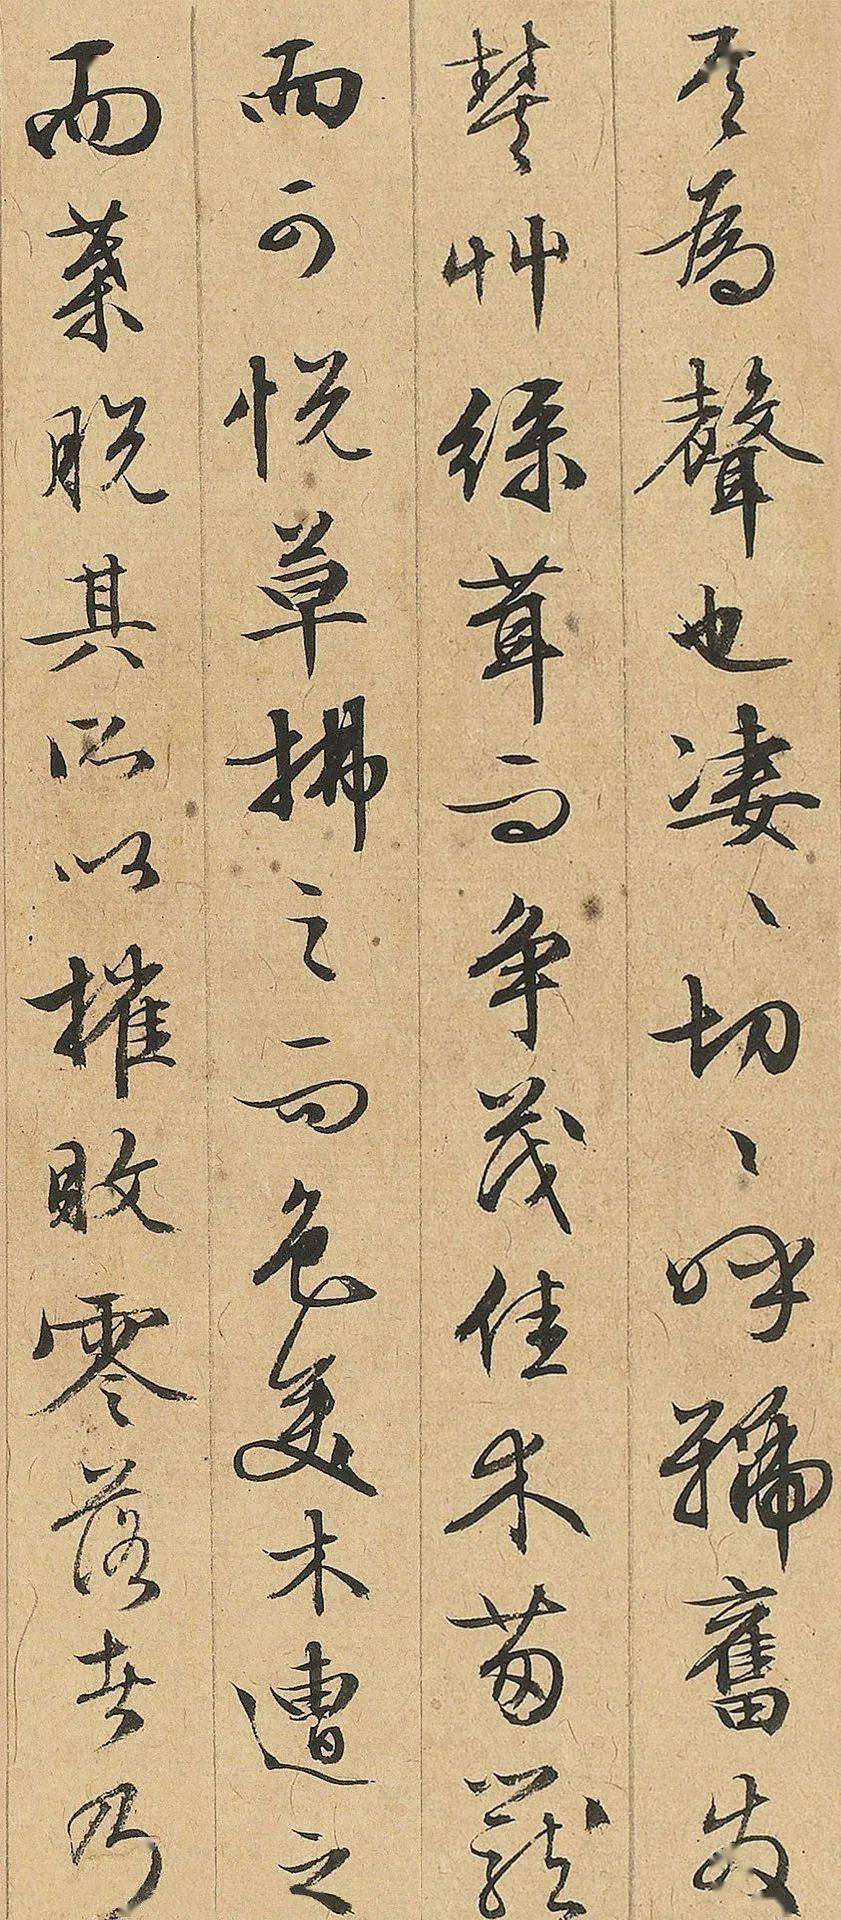 其為聲也淒〻切〻呼號奮發
豐艸綠茸而爭茂佳木葱蘢
而可悅草拂之而色美木遭之
而葉脫其所以摧敗零落者乃